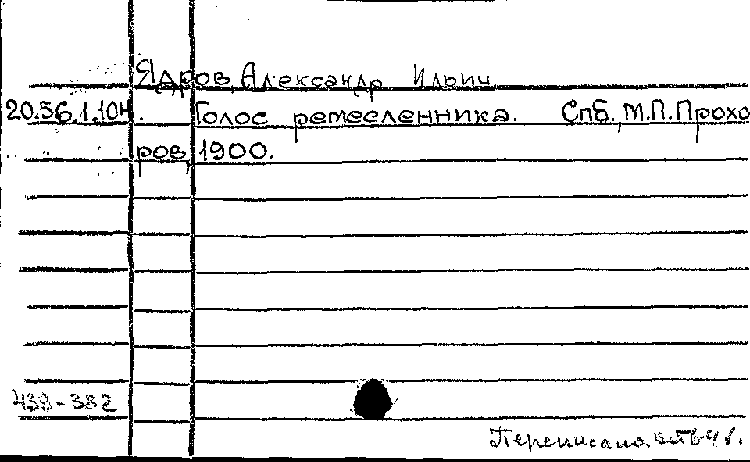 Ядров, Александр Ильич
20.56.1.104. Голос ремесленника. Спб., М.П.Прохо
ров, 1900.
439-382
Переписано.